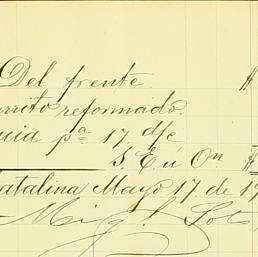 Del frente $
rrito reformado.
uia pª 17 d/c
S. E. ú On $
atalina Mayo 17 de 19
Migl. Soto